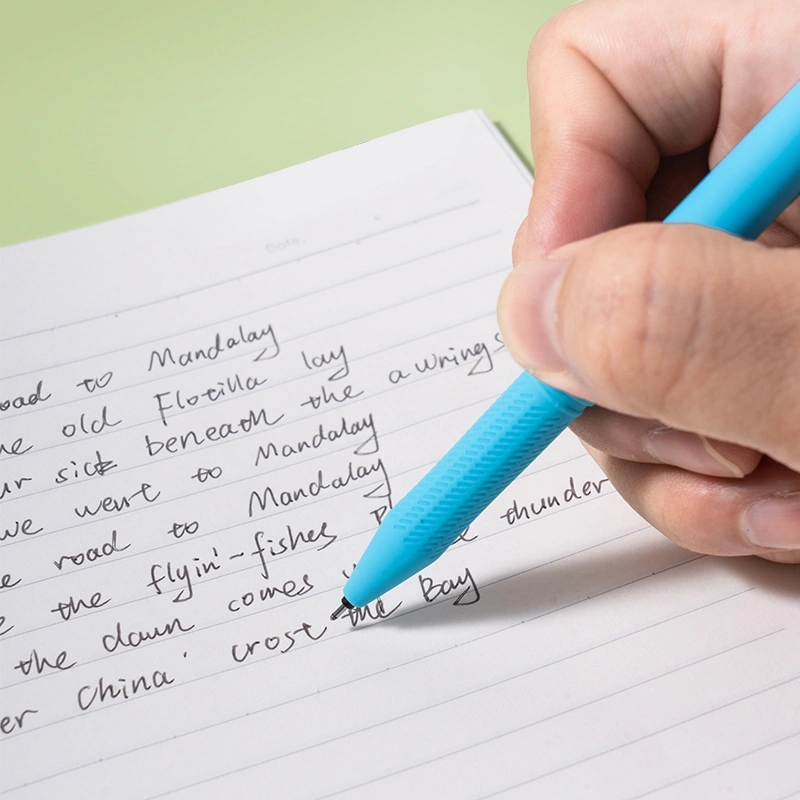 Date.
oad to Mandalay
he old Flotilla lay
ur sick beneath the awnings
we went to Mandalay
e road to Mandalay
e the flyin'-fishes thunder
the dawn comes
er China' crost the Bay